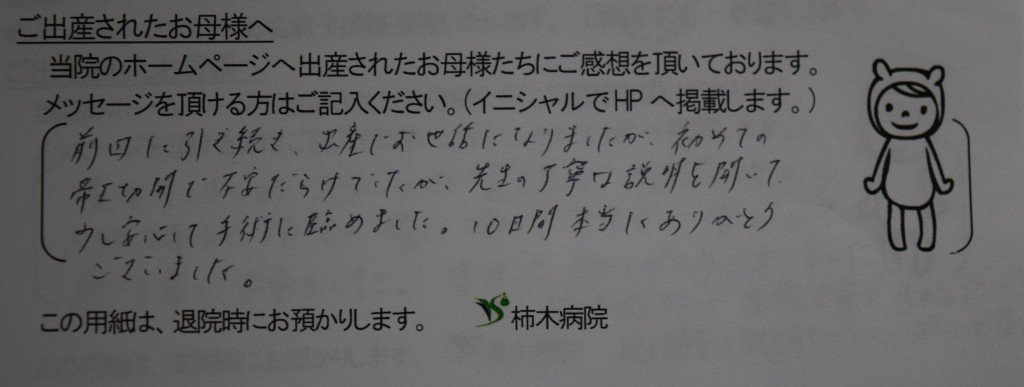 ご出産されたお母様へ
当院のホームページへ出産されたお母様たちにご感想を頂いております。
メッセージを頂ける方はご記入ください。（イニシャルでHPへ掲載します。）
前回に引き続き、出産でお世話になりましたが、初めての
帝王切開で不安だらけでしたが、先生の丁寧な説明を聞いて
少し安心して手術に臨めました。10日間本当にありがとう
ございました。
この用紙は、退院時にお預かりします。 柿木病院